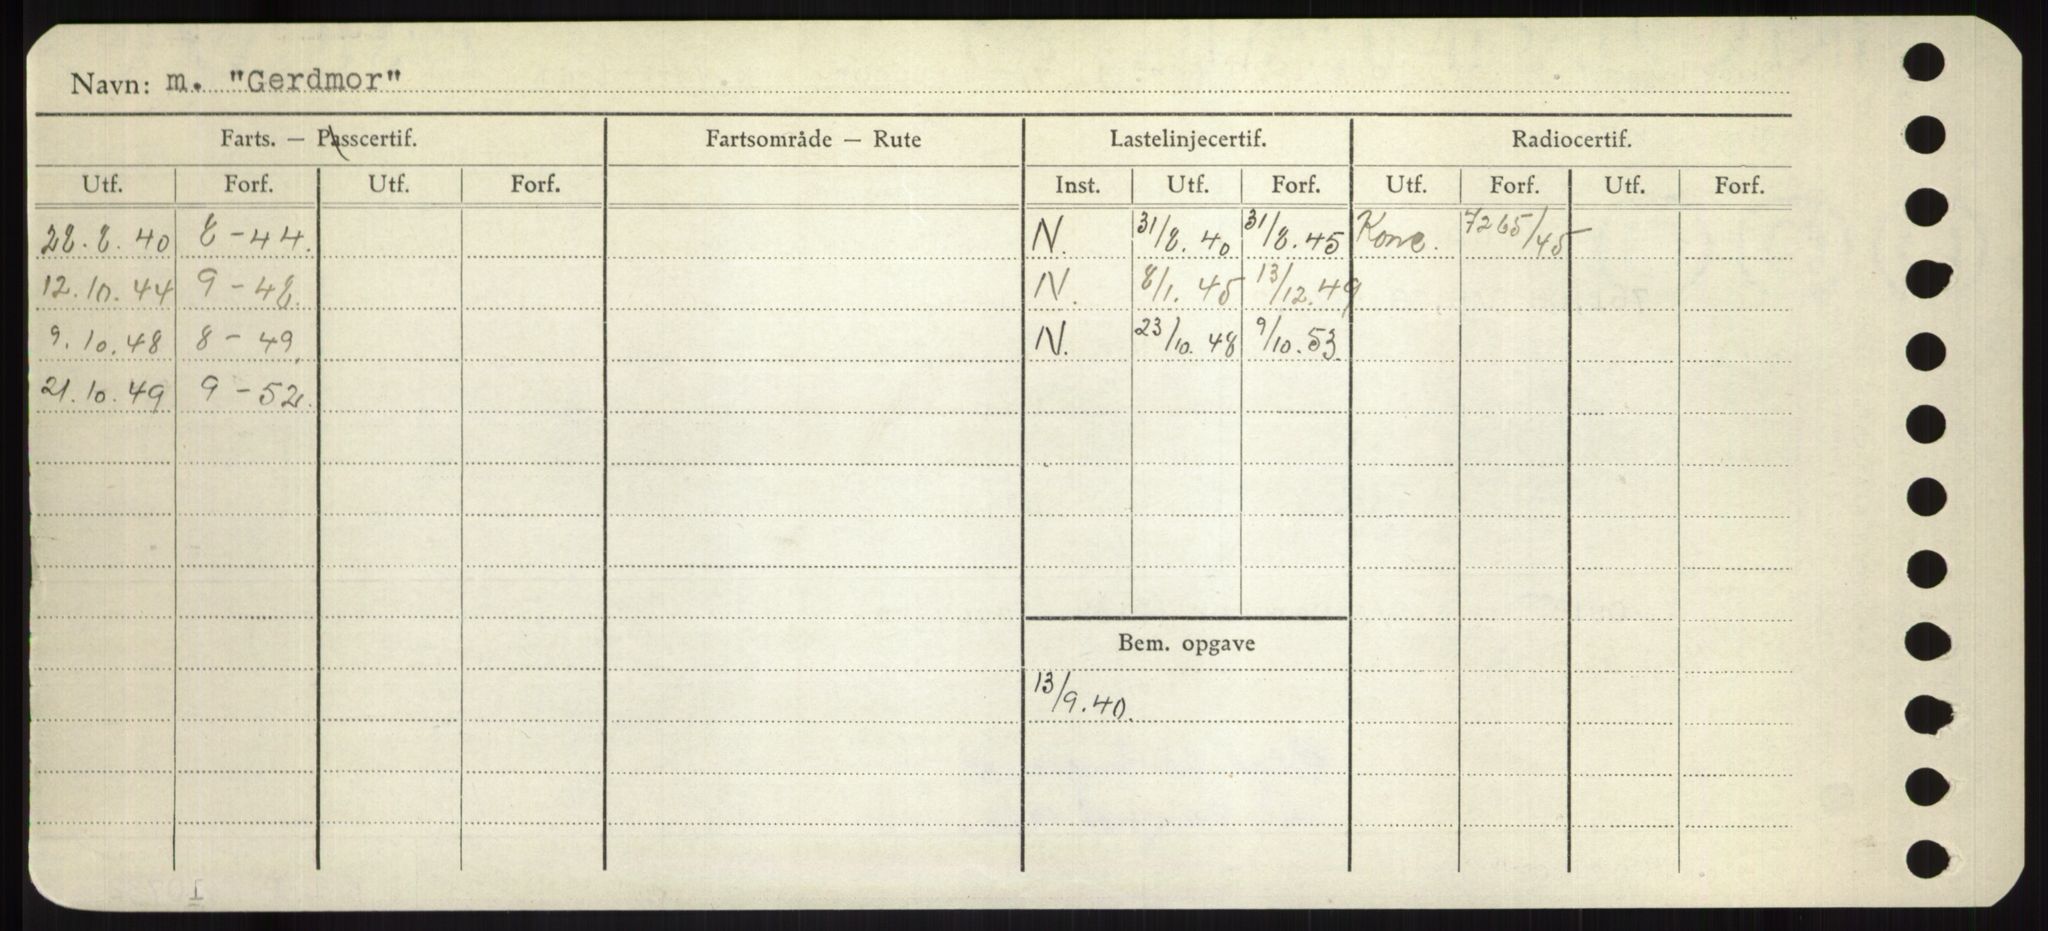 Navn: m. "Gerdmor"
Farts. — Passcertif. Fartsområde — Rute Lastelinjecertif. Radiocertif.
Utf. Forf. Utf. Forf. Inst. Utf. Forf. Utf. Forf. Utf. Forf.
28.8.40 8-44. N. 31/8.40 31/8.45 Konc. 7265/45
12.10.44 9-48. N. 8/1.45 13/12.49
9.10.48 8-49. N. 23/10.48 9/10.53
21.10.49 9-52.
Bem. opgave
13/9.40.